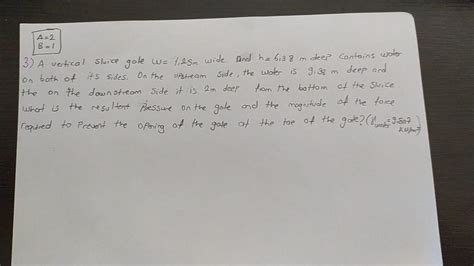 A=2
B=1
3) A vertical sluice gate w= 1,25m wide and h= 6.38 m deep contains water
on both of its sides. On the upstream side, the water is 9.38 m deep and
the on the downstream side it is 2m deep from the bottom of the sluice
What is the resultent pressure on the gate and the magnitude of the force
required to prevent the opening of the gate at the top of the gate? (γwater=9.807
kN/m³)